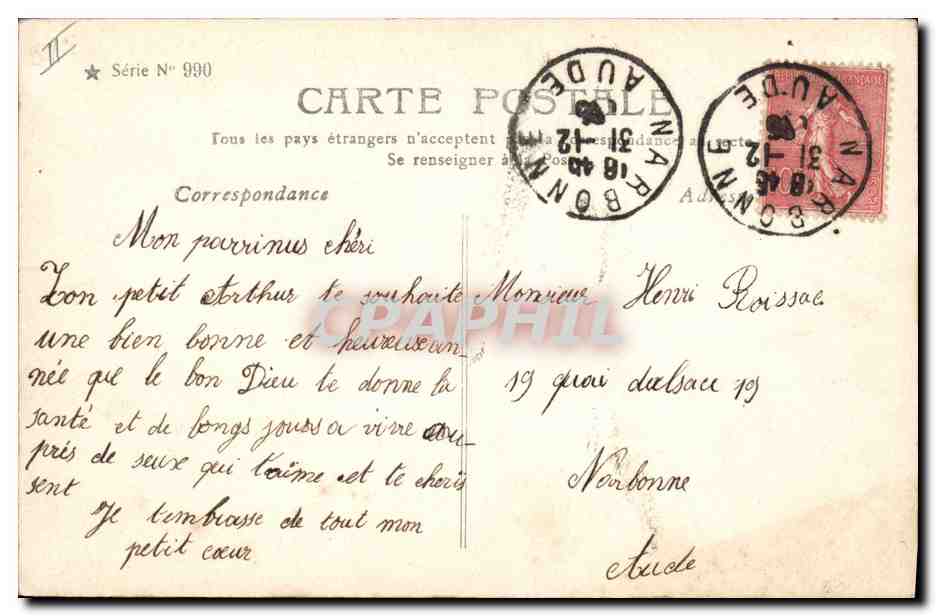 II
★ Série Nº 990
CARTE POSTALE
Tous les pays étrangers n'acceptent pas la correspondance au recto
Se renseigner à la Poste
Correspondance
Adresse
NARBONNE
AUDE
18 45
31-12
NARBONNE
AUDE
18 45
31-12
Mon parrinus chéri
Ton petit Arthur te souhaite
une bien bonne et heureuse an-
née que le bon Dieu te donne la
santé et de longs jours a vivre au-
prés de seux qui t'aime et te cheris
sent
Je t'embrasse de tout mon
petit cœur
Monsieur Henri Roissac
19 quai dalsace 19
Narbonne
Aude
CPAPHIL